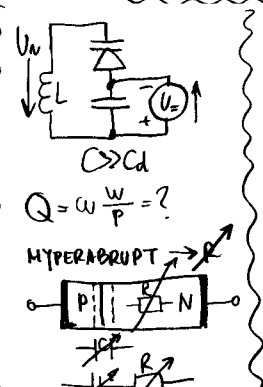 U_N
L
-
U=
+
C>>Cd
Q = ω W/P = ?
HYPERABRUPT → R
P R N
C
R